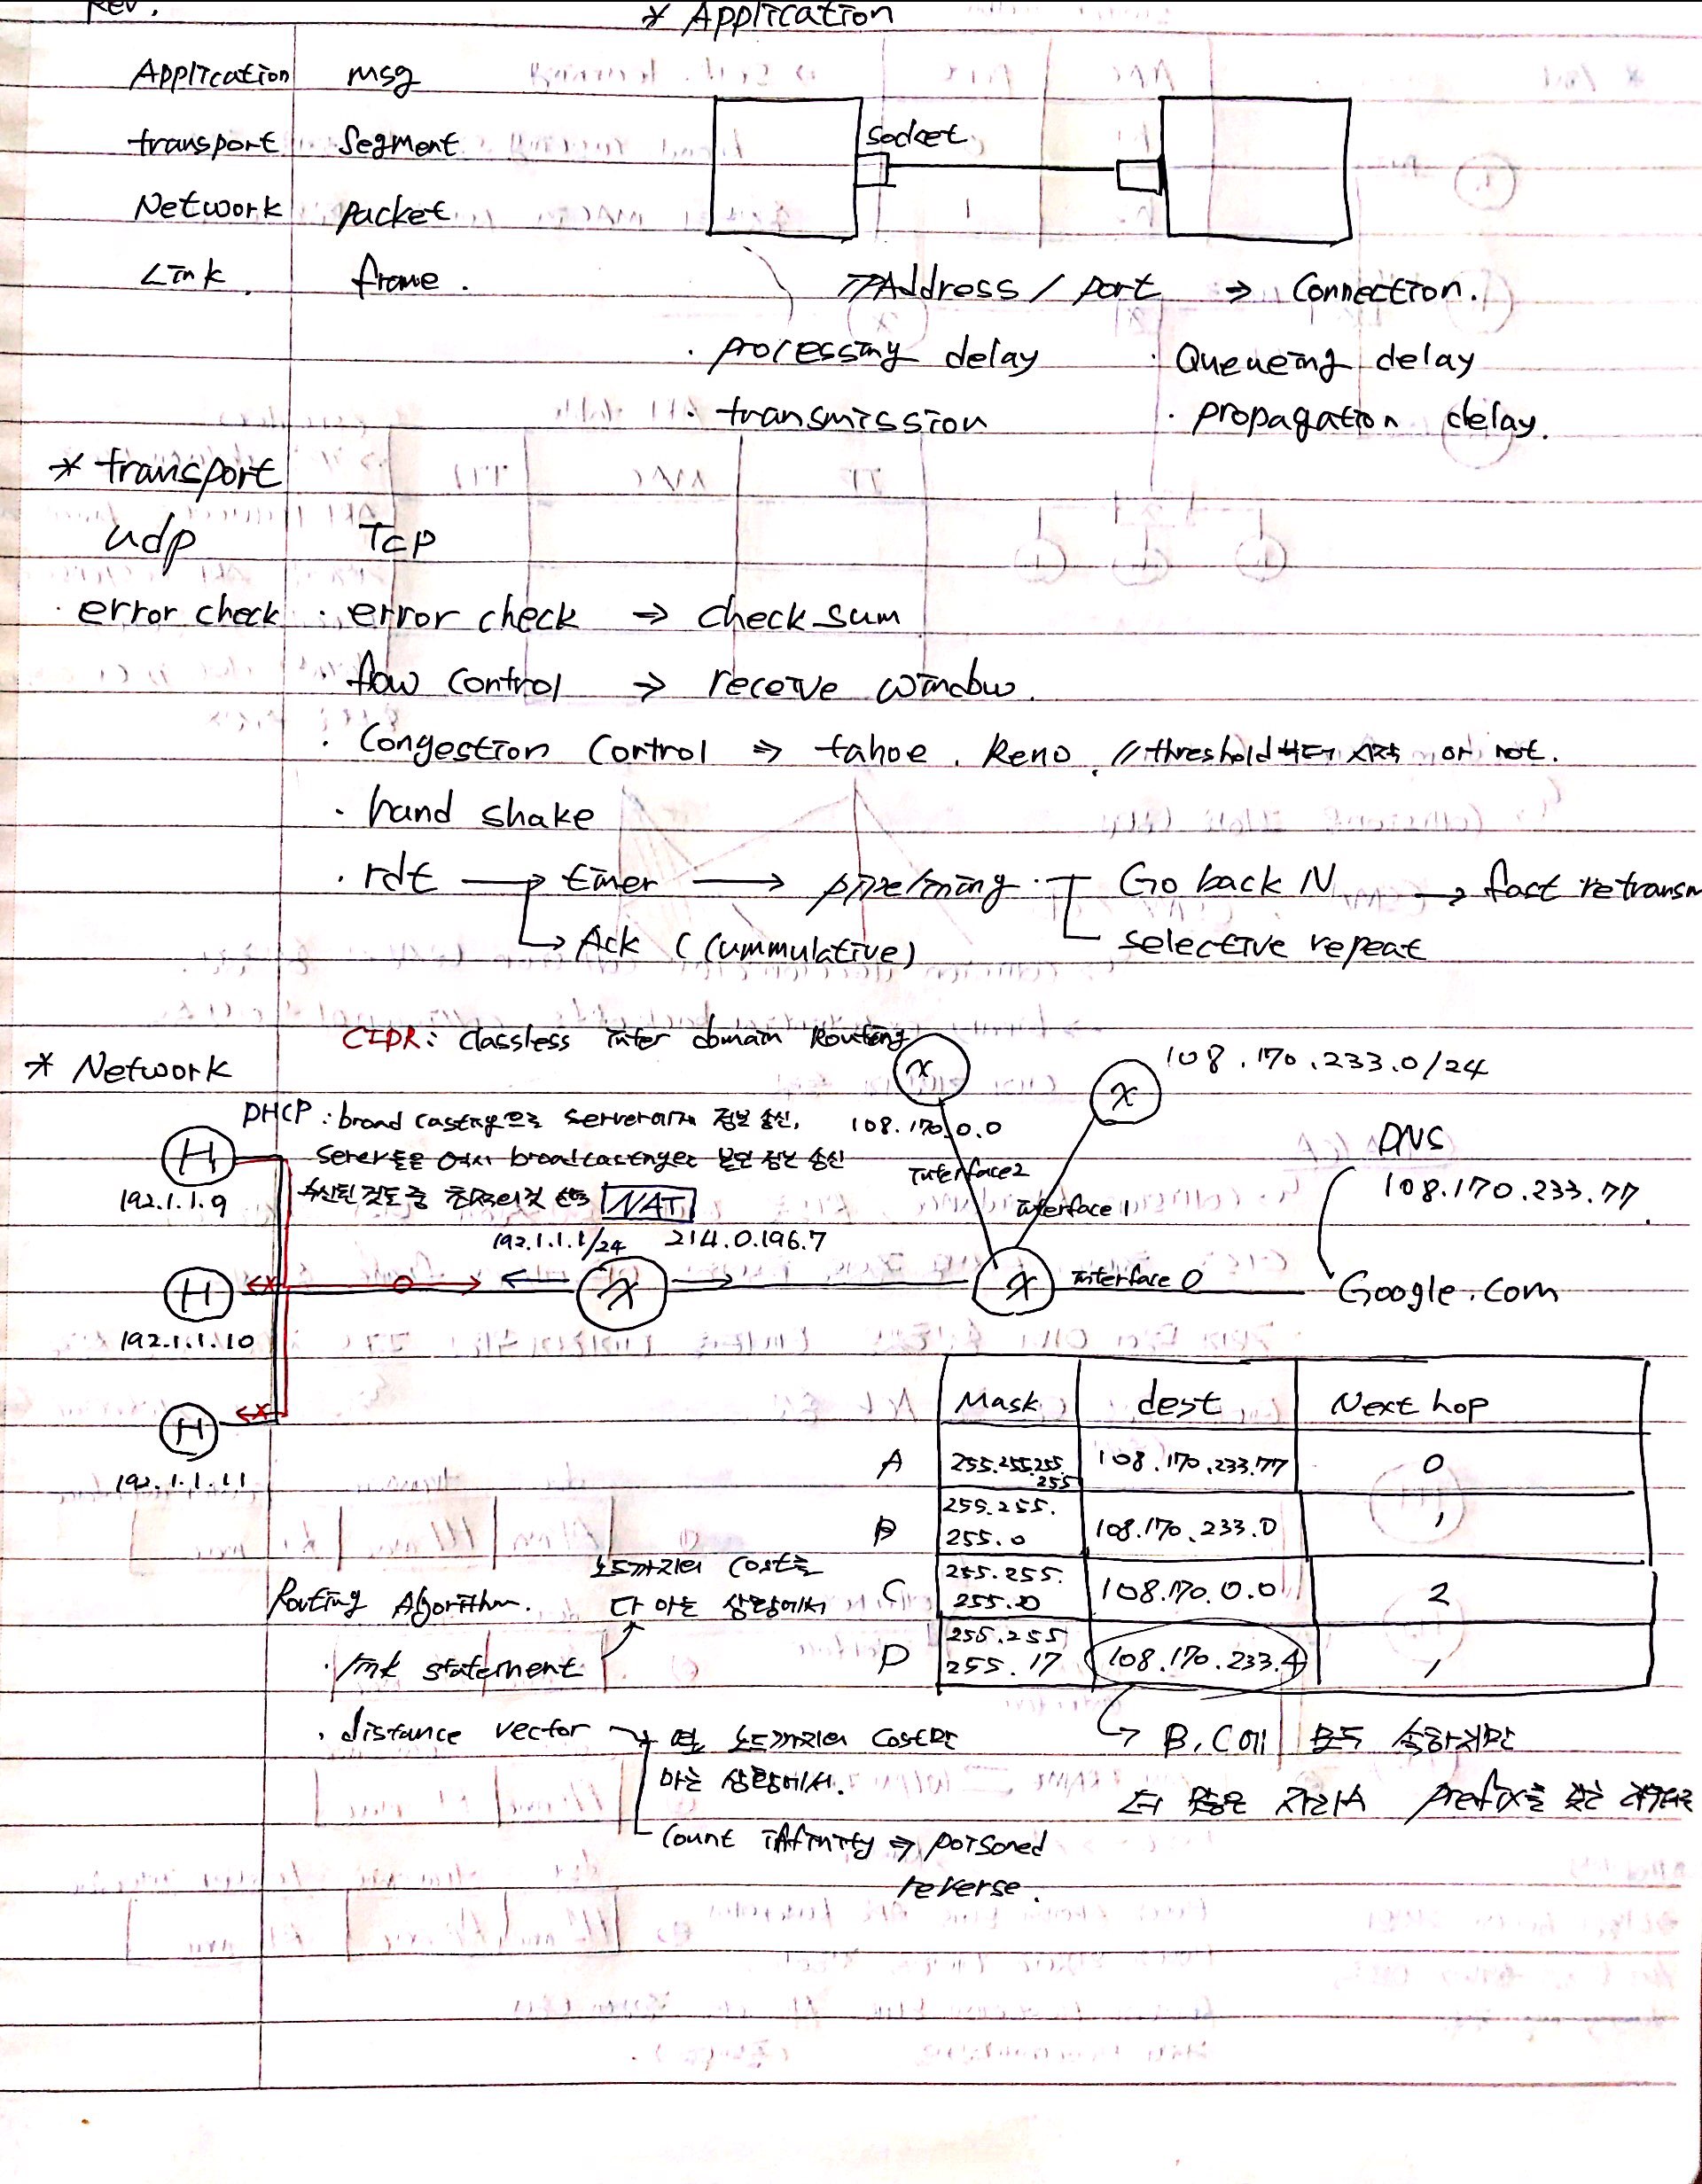 Rev.
* Application
Application msg
transport Segment
Network packet
Link. frame.
socket
IPAddress / port → Connection.
· processing delay · Queueing delay
· transmission · propagation delay.
* transport
udp TCP
· error check · error check ⇒ check sum
flow control → receive window.
· Congestion Control ⇒ tahoe. Reno. // threshold부터 시작 or not.
· hand shake
· rdt → timer → pipelining · Go back N → fast retransm
→ Ack (cummulative) selective repeat
CIDR: Classless inter domain Routing
* Network
X
X 108.170.233.0/24
DHCP : broad casting으로 server에게 정보 송신,
108.170.0.0
DNS
H
server들은 역시 broadcasting으로 본인 정보 송신
interface2
108.170.233.77
192.1.1.9
수신된 것들 중 최적의 것 선택
NAT
interface 1
192.1.1.1/24 214.0.196.7
H X X interface 0 Google.com
192.1.1.10
H
192.1.1.11
Mask dest Next hop
A 255.255.255.255 108.170.233.77 0
B 255.255.255.0 108.170.233.0 1
C 255.255.255.0 108.170.0.0 2
D 255.255 255.17 108.170.233.4 1
Routing Algorithm.
노드까지의 cost를
다 아는 상황에서
· link statement
· distance vector → 옆 노드까지의 cost만
아는 상황에서.
count infinity ⇒ poisoned
reverse.
→ B, C에 모두 속하지만
더 많은 자리수 prefix를 갖는